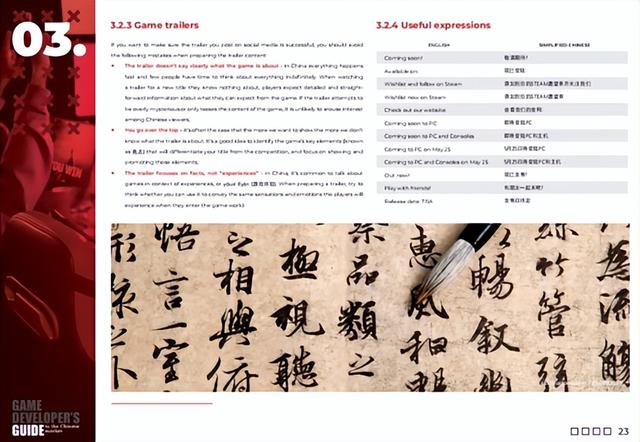 03.
3.2.3 Game trailers
If you want to make sure the trailer you post on social media is successful, you should avoid
the following mistakes when preparing the trailer content:
• The trailer doesn't say clearly what the game is about - in China everything happens
fast and few people have time to think about everything indefinitely. When watching
a trailer for a new title they know nothing about, players expect detailed and straight-
forward information about what they can expect from the game. If the trailer attempts to
be overly mysterious or only teases the content of the game, it is unlikely to arouse interest
among Chinese viewers.
• You go over the top - it's often the case that the more we want to show the more we don't
know what the trailer is about. It's a good idea to identify the game's key elements (known
as 亮点) that will differentiate your title from the competition, and focus on showing and
promoting those elements.
• The trailer focuses on facts, not "experiences" - in China, it's common to talk about
games in context of experiences, or youxi tiyan (游戏体验). When preparing a trailer, try to
think whether you can use it to convey the same sensations and emotions the players will
experience when they enter the game world.
3.2.4 Useful expressions
ENGLISH SIMPLIFIED CHINESE
Coming soon! 敬请期待!
Available on: 现已登陆:
Wishlist and follow on Steam 添加到你的STEAM愿望单并关注我们
Wishlist now on Steam 添加到你的STEAM愿望单
Check out our website 查看我们的官网
Coming soon to PC 即将登陆PC
Coming soon to PC and Consoles 即将登陆PC和主机
Coming to PC on May 25 5月25日将登陆PC
Coming to PC and Consoles on May 25 5月25日将登陆PC和主机
Out now! 现已发售!
Play with friends! 和朋友一起来吧!
Release date: TBA 发售日待定
YOU WIN
形 悟 之 極 祭 惠 暢 絲 為
言 相 視 品 風 叙 竹 流
一 與 聽 類 和 管 觴
卜 室 俯 之 暢 弦
GAME
DEVELOPER'S
GUIDE to the Chinese
market
23